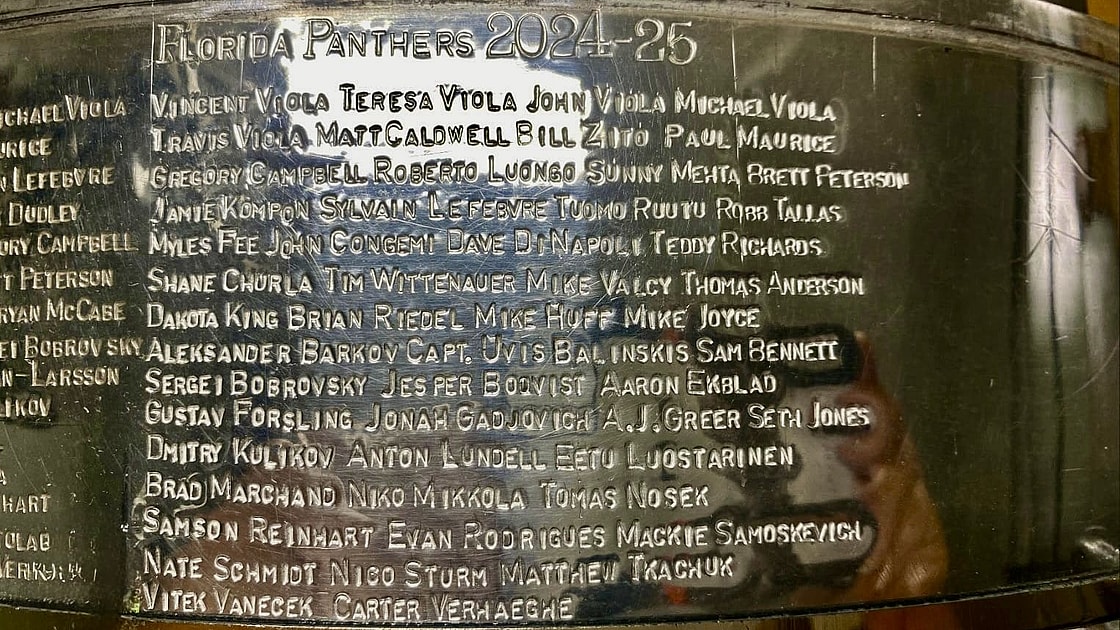 FLORIDA PANTHERS 2024-25
VINCENT VIOLA TERESA VIOLA JOHN VIOLA MICHAEL VIOLA
TRAVIS VIOLA MATT CALDWELL BILL ZITO PAUL MAURICE
GREGORY CAMPBELL ROBERTO LUONGO SUNNY MEHTA BRETT PETERSON
JAMIE KOMPON SYLVAIN LEFEBVRE TUOMO RUUTU ROBB TALLAS
MYLES FEE JOHN CONGEMI DAVE DINAPOLI TEDDY RICHARDS
SHANE CHURLA TIM WITTENAUER MIKE VALCY THOMAS ANDERSON
DAKOTA KING BRIAN RIEDEL MIKE HUFF MIKE JOYCE
ALEKSANDER BARKOV CAPT. UVIS BALINSKIS SAM BENNETT
SERGEI BOBROVSKY JESPER BOQVIST AARON EKBLAD
GUSTAV FORSLING JONAH GADJOVICH A.J. GREER SETH JONES
DMITRY KULIKOV ANTON LUNDELL EETU LUOSTARINEN
BRAD MARCHAND NIKO MIKKOLA TOMAS NOSEK
SAMSON REINHART EVAN RODRIGUES MACKIE SAMOSKEVICH
NATE SCHMIDT NICO STURM MATTHEW TKACHUK
VITEK VANECEK CARTER VERHAEGHE
VIOLA
LEFEBVRE
DUDLEY
CAMPBELL
PETERSON
RYAN MCCABE
BOBROVSKY
-LARSSON